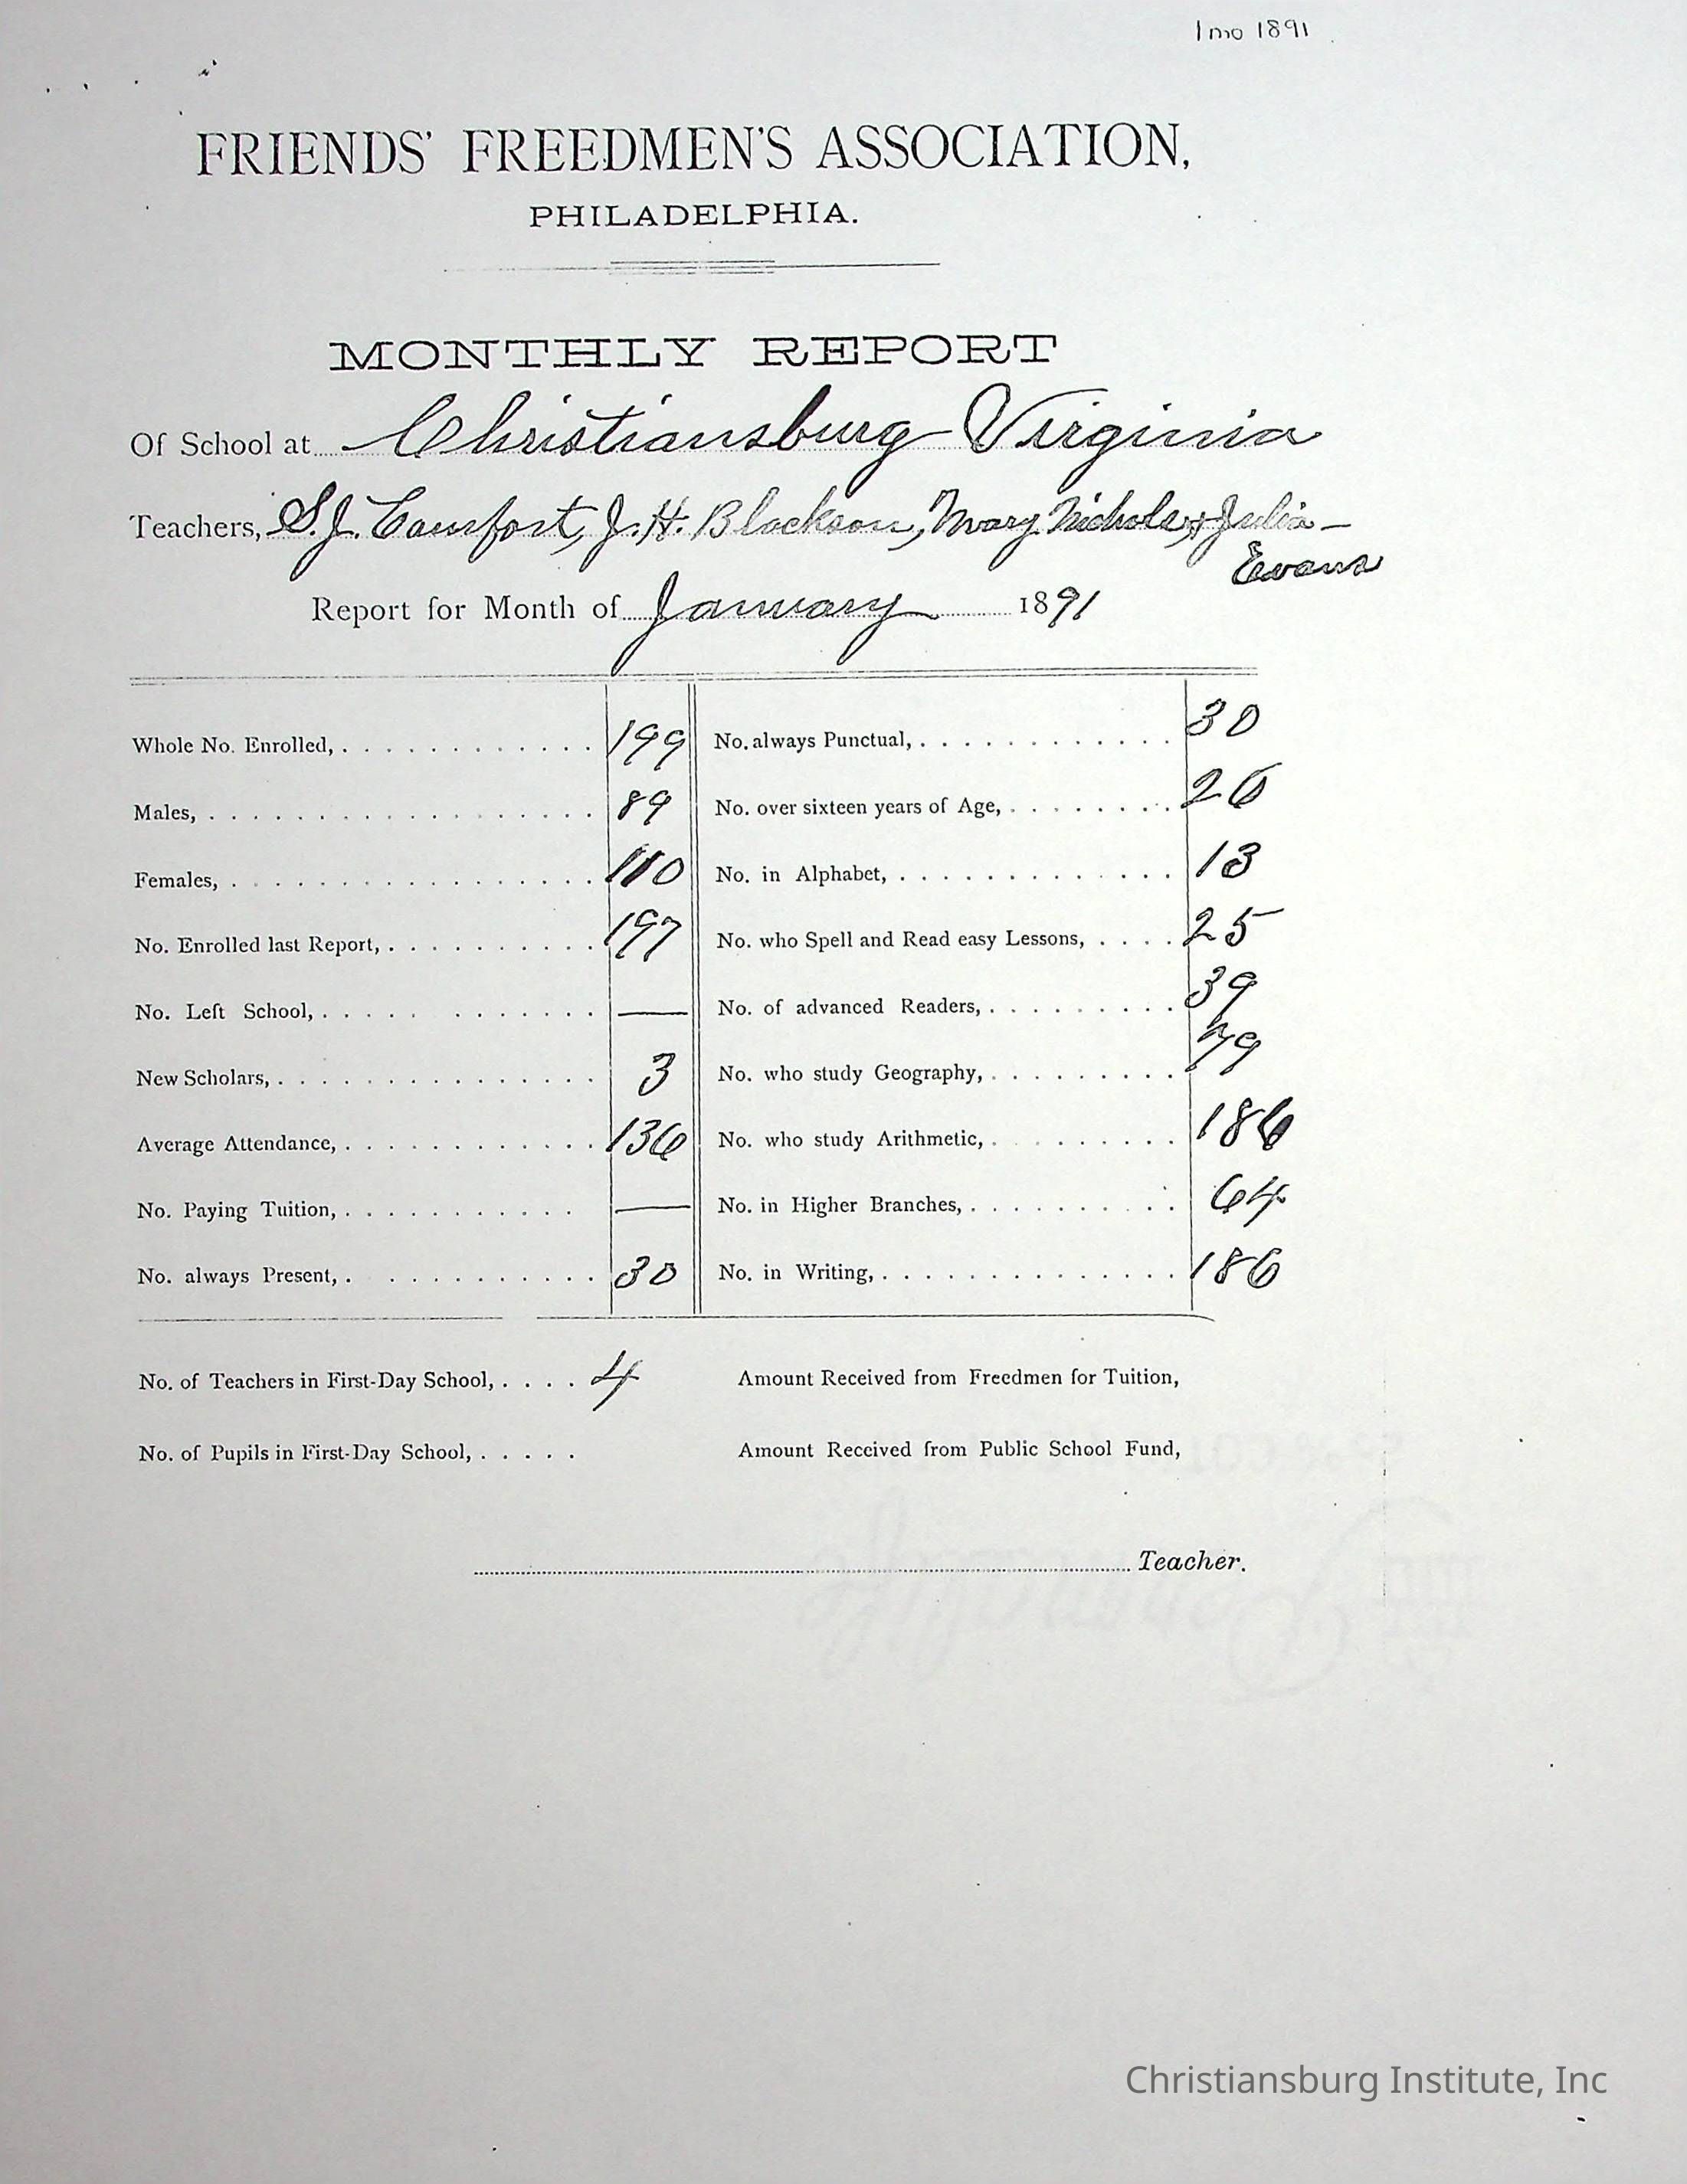 1 mo 1891
FRIENDS' FREEDMEN'S ASSOCIATION,
PHILADELPHIA.
MONTHLY REPORT
Of School at Christiansburg Virginia
Teachers, S.J. Comfort, J.H. Blackson, Mary Nichols, & Julia
Evans
Report for Month of January 1891
Whole No. Enrolled, 199 No. always Punctual, 30
Males, 89 No. over sixteen years of Age, 26
Females, 110 No. in Alphabet, 13
No. Enrolled last Report, 197 No. who Spell and Read easy Lessons, 25
No. Left School, — No. of advanced Readers, 39
New Scholars, 3 No. who study Geography, 79
Average Attendance, 136 No. who study Arithmetic, 186
No. Paying Tuition, — No. in Higher Branches, 64
No. always Present, 30 No. in Writing, 186
No. of Teachers in First-Day School, 4 Amount Received from Freedmen for Tuition,
No. of Pupils in First-Day School, Amount Received from Public School Fund,
Teacher.
Christiansburg Institute, Inc